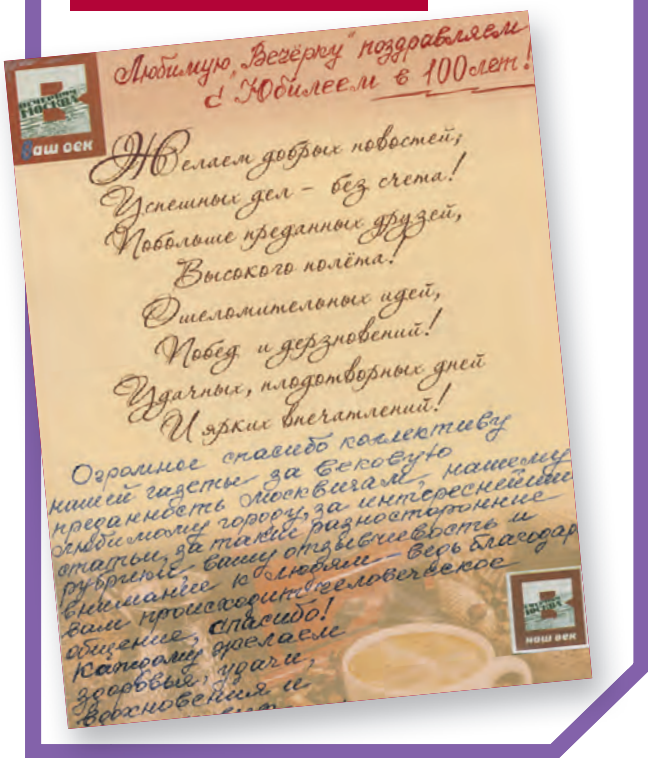 ВЕЧЕРНЯЯ
МОСКВА
Наш век
Любимую „Вечёрку" поздравляем
с Юбилеем в 100 лет!
Желаем добрых новостей;
Успешных дел – без счета!
Побольше преданных друзей,
Высокого полёта!
Ошеломительных идей,
Побед и дерзновений!
Удачных, плодотворных дней
И ярких впечатлений!
Огромное спасибо коллективу
нашей газеты за вековую
преданность москвичам, нашему
любимому городу, за интереснейшие
статьи, за такие разносторонние
рубрики, вашу отзывчивость и
внимание к людям – ведь благодар
вам происходит человеческое
общение, спасибо!
Каждому желаем
здоровья, удачи,
вдохновения и
ВЕЧЕРНЯЯ
МОСКВА
наш век